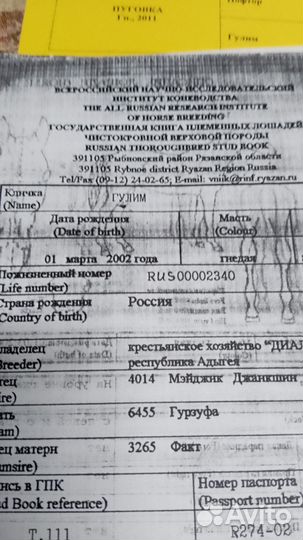 ПУГОВКА
Гн., 2011
Гулим
ВСЕРОССИЙСКИЙ НАУЧНО-ИССЛЕДОВАТЕЛЬСКИЙ
ИНСТИТУТ КОНЕВОДСТВА
THE ALL RUSSIAN RESEARCH INSTITUTE
OF HORSE BREEDING
ГОСУДАРСТВЕННАЯ КНИГА ПЛЕМЕННЫХ ЛОШАДЕЙ
ЧИСТОКРОВНОЙ ВЕРХОВОЙ ПОРОДЫ
RUSSIAN THOROUGHBRED STUD BOOK
391105 Рыбновский район Рязанской области
391105 Rybnoe district Ryazan Region Russia
Tel/Fax (09-12) 24-02-65; E-mail: vniik@rinf.ryazan.ru
Кличка ГУЛИМ
(Name)
Дата рождения Масть
(Date of birth) (Colour)
01 марта 2002 года гнедая
Пожизненный номер RUS00002340
(Life number)
Страна рождения Россия
(Country of birth)
ладелец крестьянское хозяйство "ДИА
reeder) республика Адыгея
тец 4014 Мэйджик Джанкшин
ire)
ать 6455 Гурзуфа
am)
ец матери 3265 Факт
amsire)
ись в ГПК Номер паспорта
d Book reference) (Passport number)
Т.111 R274-02
Avito